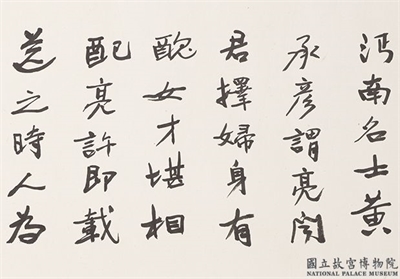 沔南名士黄
承彦謂亮聞
君擇婦身有
醜女才堪相
配亮許即載
送之時人為
國立故宮博物院
NATIONAL PALACE MUSEUM